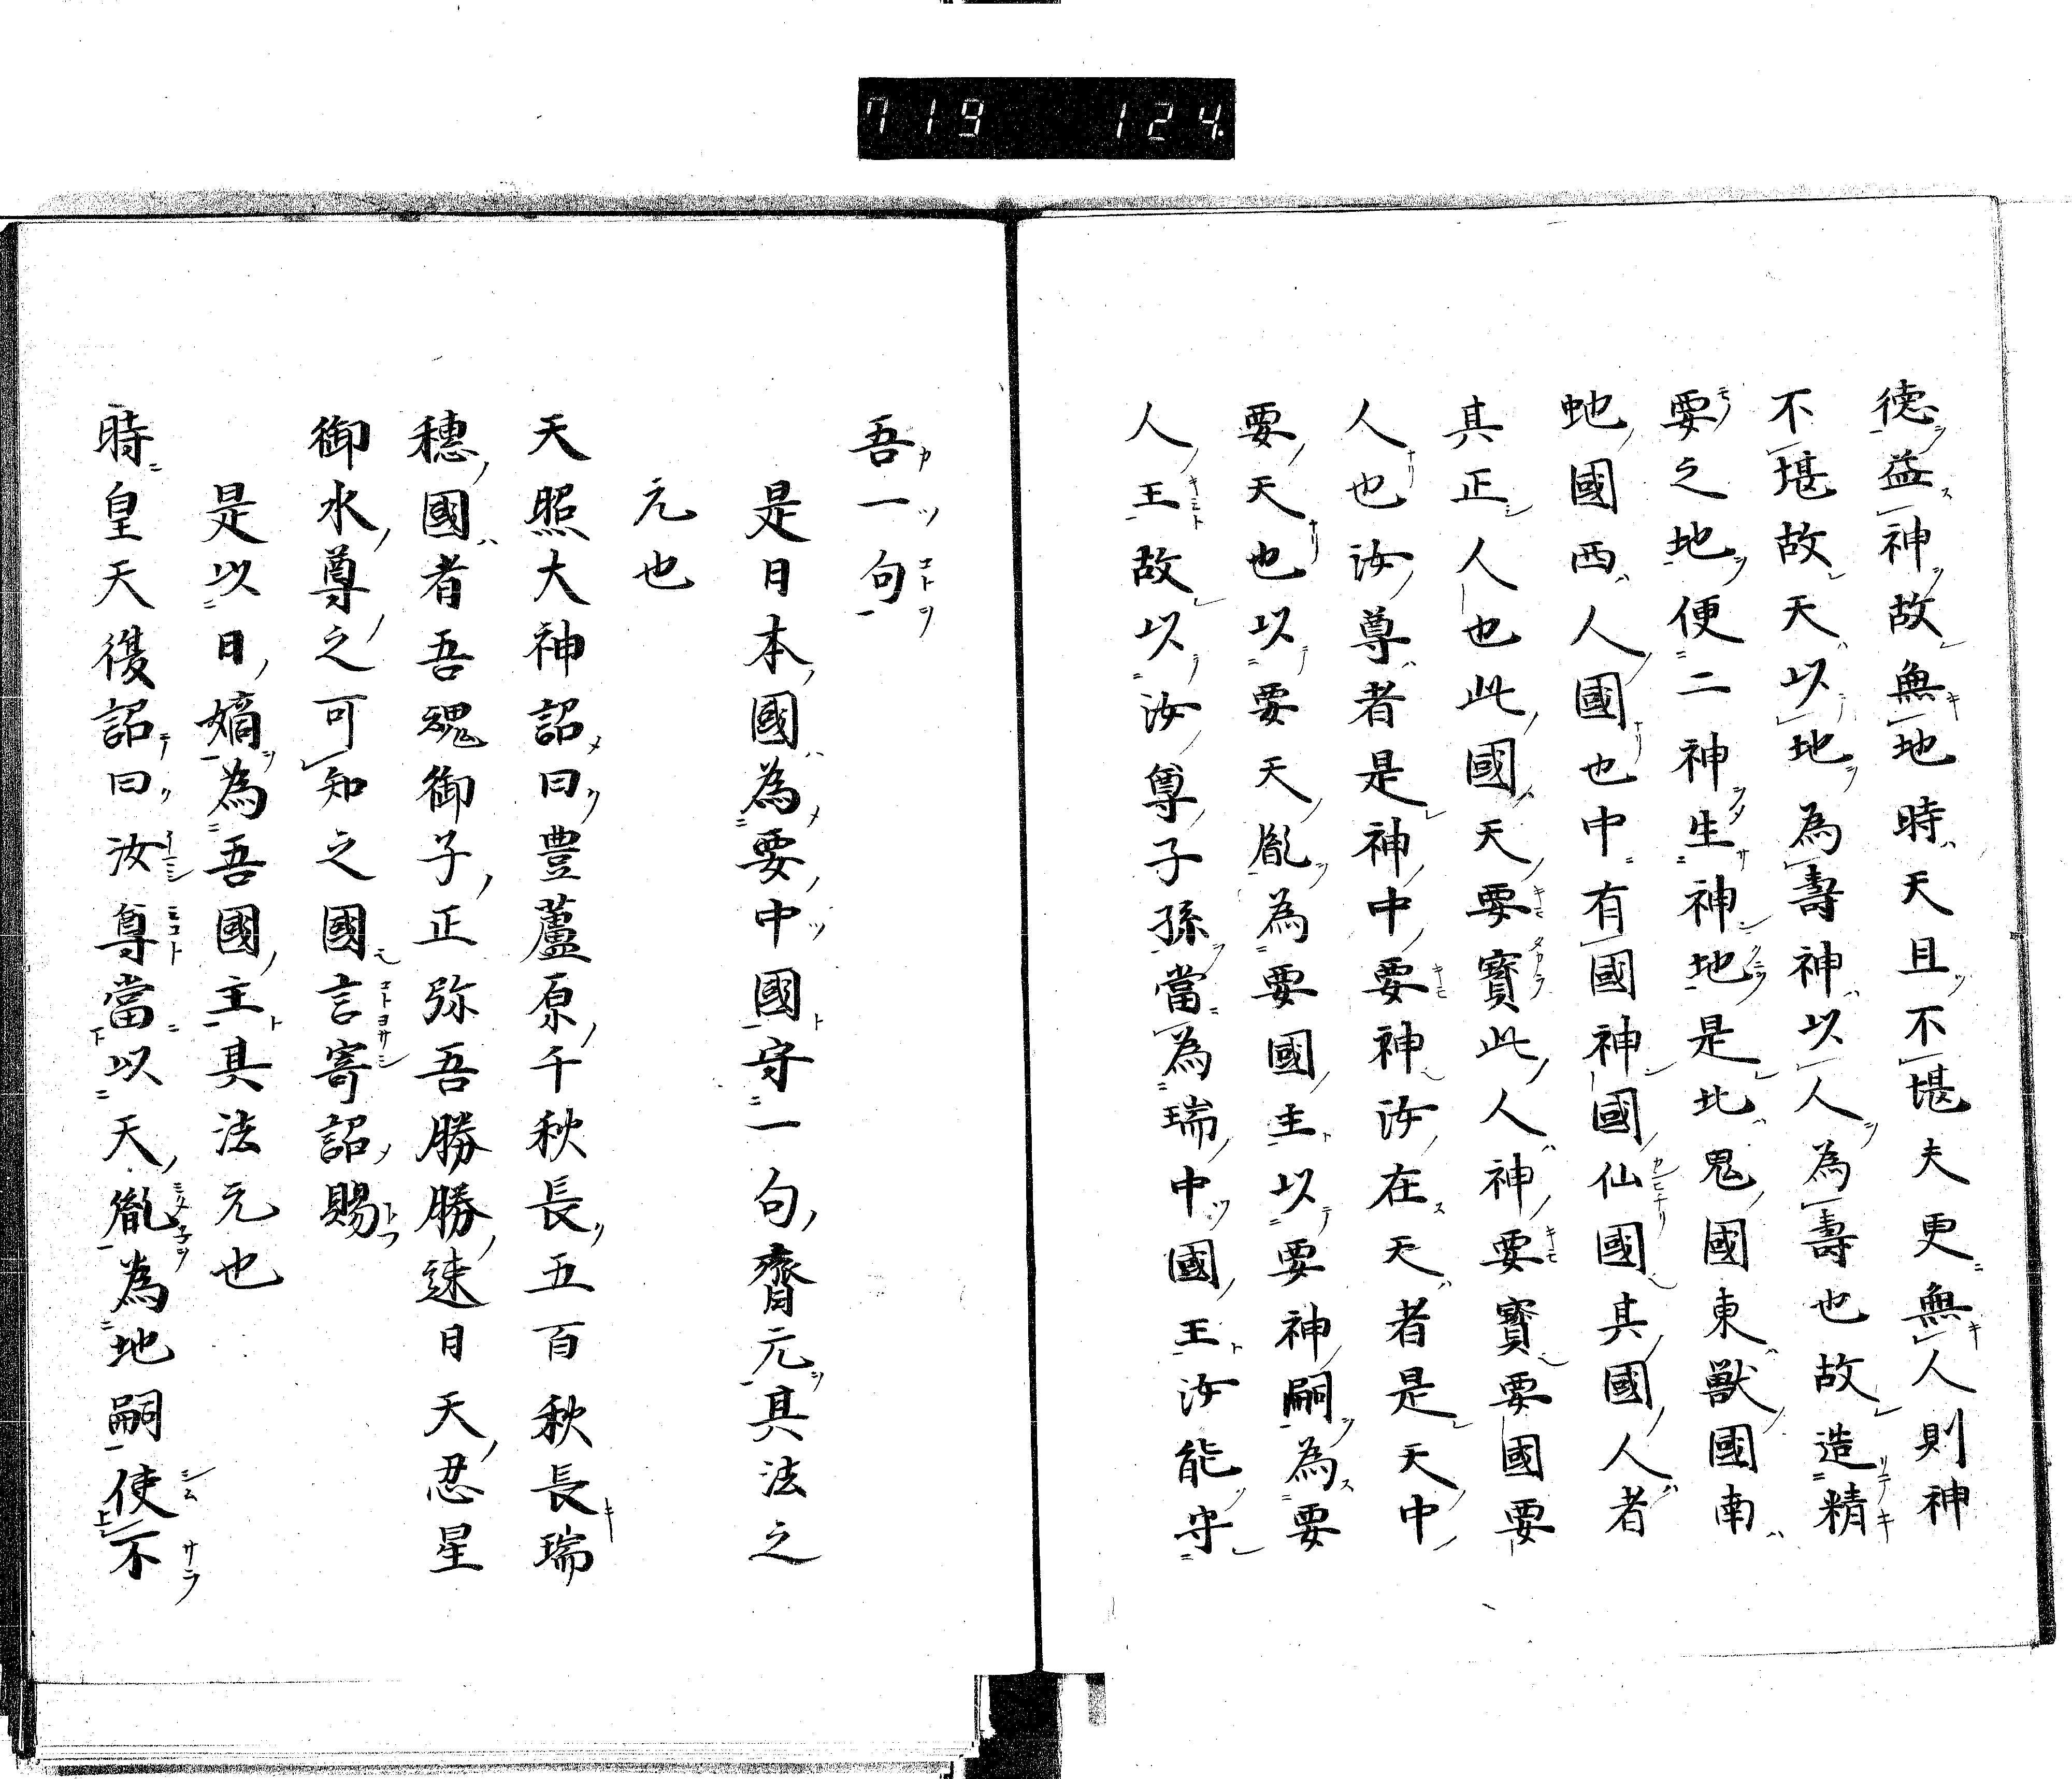 719 124
徳益神故無地時天且不堪夫更無人則神
不堪故天以地為壽神以人為壽也故造精
要之地便二神生神地是北鬼國東獣國南
虵國西人國也中有國神國仙國其國人者
其正人也此國天要寳此人神要寳要國要
人也汝尊者是神中要神汝在天者是天中
要天也以要天胤為要國主以要神嗣為要
人王故以汝尊子孫當為瑞中國王汝能守
吾一句
是日本國為要中國守一句齋元其法之
元也
天照大神詔曰豊蘆原千秋長五百秋長瑞
穗國者吾魂御子正弥吾勝勝速日天忍星
御水尊之可知之國言寄詔賜
是以日嫡為吾國主其法元也
時皇天復詔曰汝尊當以天胤為地嗣使不